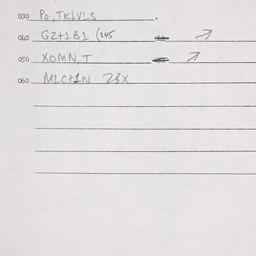 030 Po, TKLV'S.
040 G2+1B1 (345
050 XOMN, T
060 M1C+1N 28X